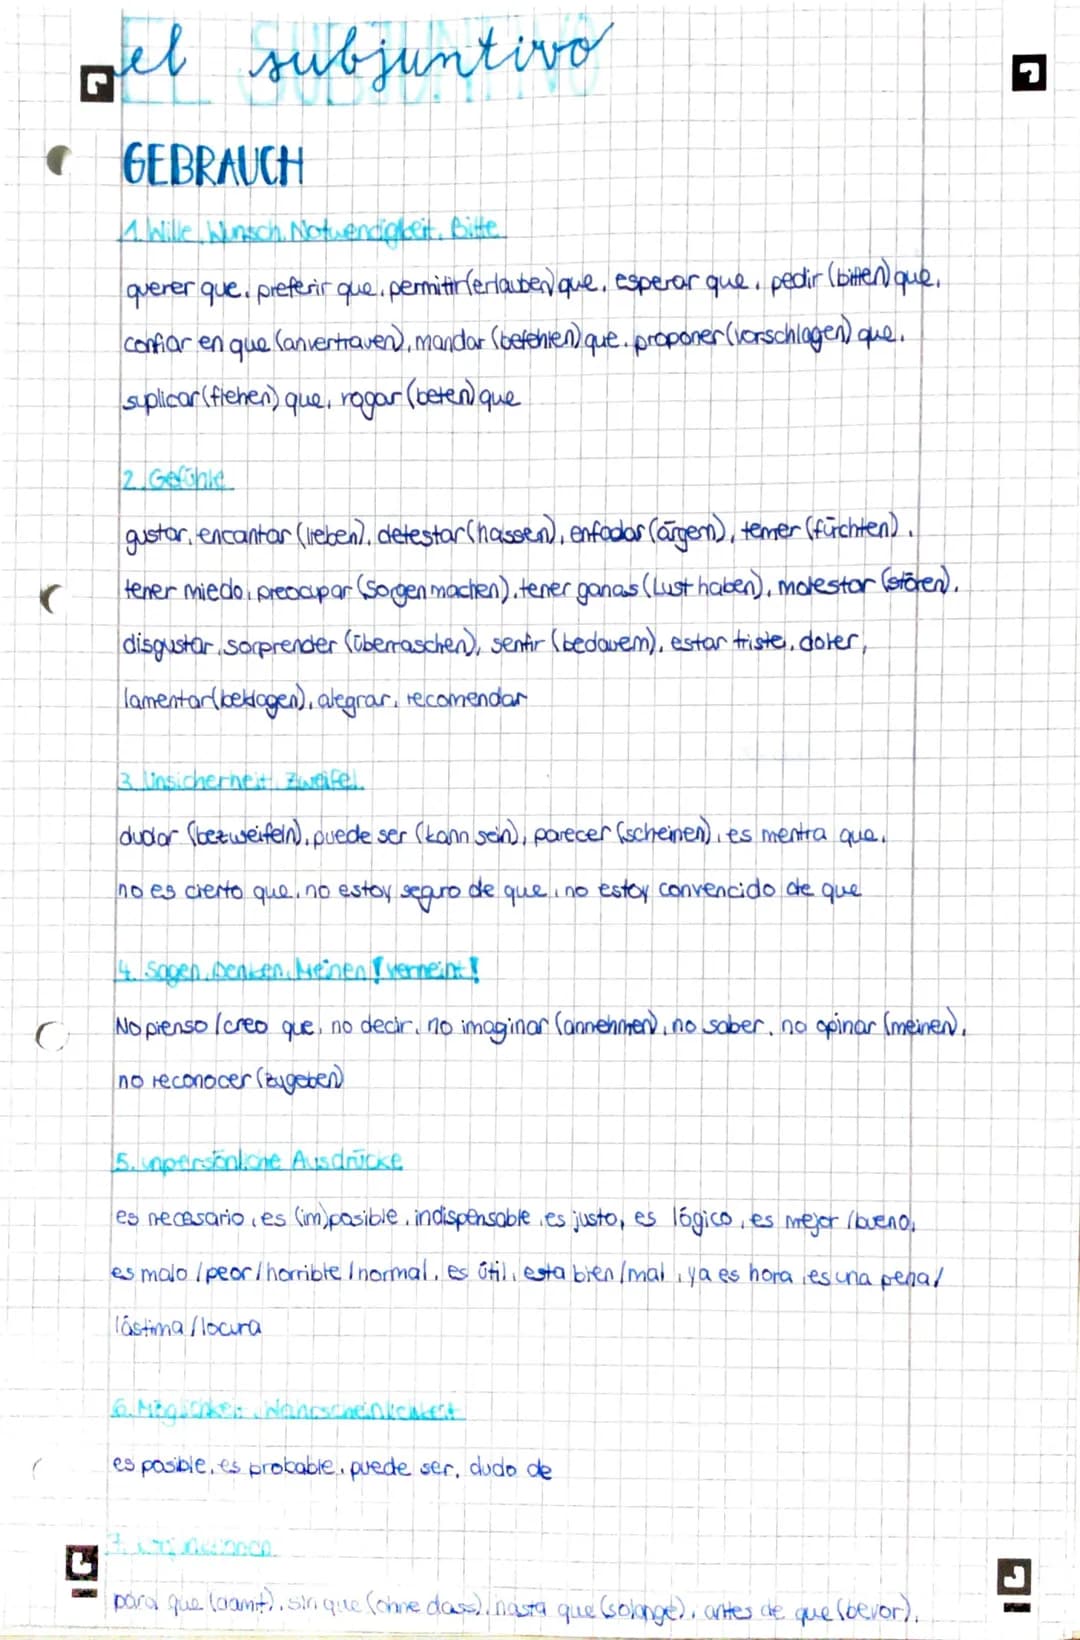 el subjuntivo
GEBRAUCH
1. Wille, Wunsch, Notwendigkeit, Bitte
querer que, preferir que, permitir (erlauben) que, esperar que, pedir (bitten) que,
confiar en que (anvertrauen), mandar (befehlen) que, proponer (vorschlagen) que,
suplicar (flehen) que, rogar (beten) que
2. Gefühle
gustar, encantar (lieben), detestar (hassen), enfadar (ärgern), temer (fürchten),
tener miedo, preocupar (Sorgen machen), tener ganas (Lust haben), molestar (stören),
disgustar, sorprender (überraschen), sentir (bedauern), estar triste, doler,
lamentar (beklagen), alegrar, recomendar
3. Unsicherheit, Zweifel
dudar (bezweifeln), puede ser (kann sein), parecer (scheinen), es mentra que,
no es cierto que, no estoy seguro de que, no estoy convencido de que
4. Sagen, Denken, Meinen ! verneint !
No pienso / creo que, no decir, no imaginar (annehmen), no saber, no opinar (meinen),
no reconocer (zugeben)
5. unpersönliche Ausdrücke
es necesario, es (im)posible, indispensable, es justo, es lógico, es mejor / bueno,
es malo / peor / horrible / normal, es útil, esta bien / mal, ya es hora, es una pena /
lástima / locura
6. Möglichkeit, Wahrscheinlichkeit
es posible, es probable, puede ser, dudo de
7.
para que (damit), sin que (ohne dass), hasta que (solange), antes de que (bevor),